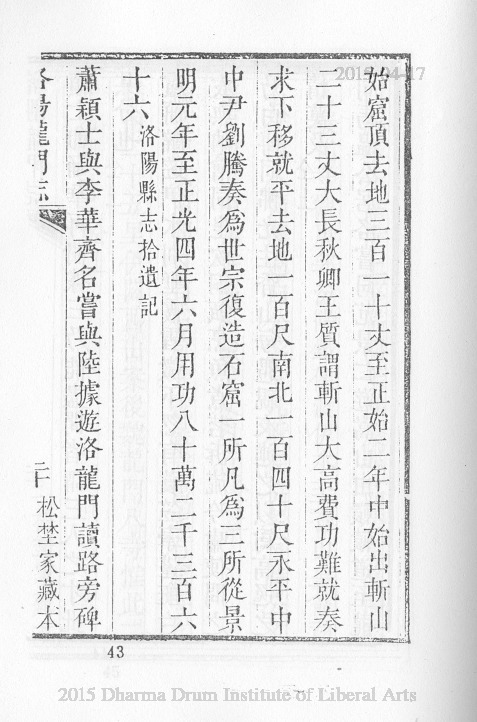 始窟頂去地三百一十丈至正始二年中始出斬山
二十三丈大長秋卿王質謂斬山太高費功難就奏
求下移就平去地一百尺南北一百四十尺永平中
中尹劉騰奏爲世宗復造石窟一所凡爲三所從景
明元年至正光四年六月用功八十萬二千三百六
十六 洛陽縣志拾遺記
蕭穎士與李華齊名嘗與陸據遊洛龍門讀路旁碑
洛陽龍門志
二十 松埜家藏本
43
2015-04-17
2015 Dharma Drum Institute of Liberal Arts